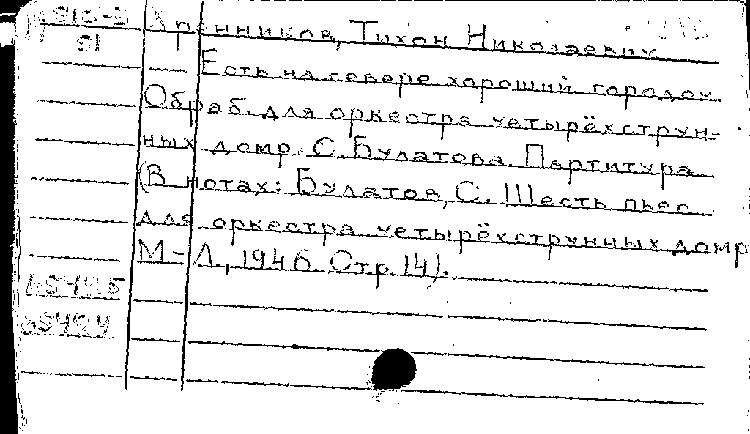 Хренников, Тихон Николаевич
Есть на севере хороший городок.
Обраб. для оркестра четырёхструн-
ных домр С. Булатова. Партитура
(В нотах: Булатов, С. Шесть пьес
для оркестра четырёхструнных домр
М-Л, 1946. Стр. 14).